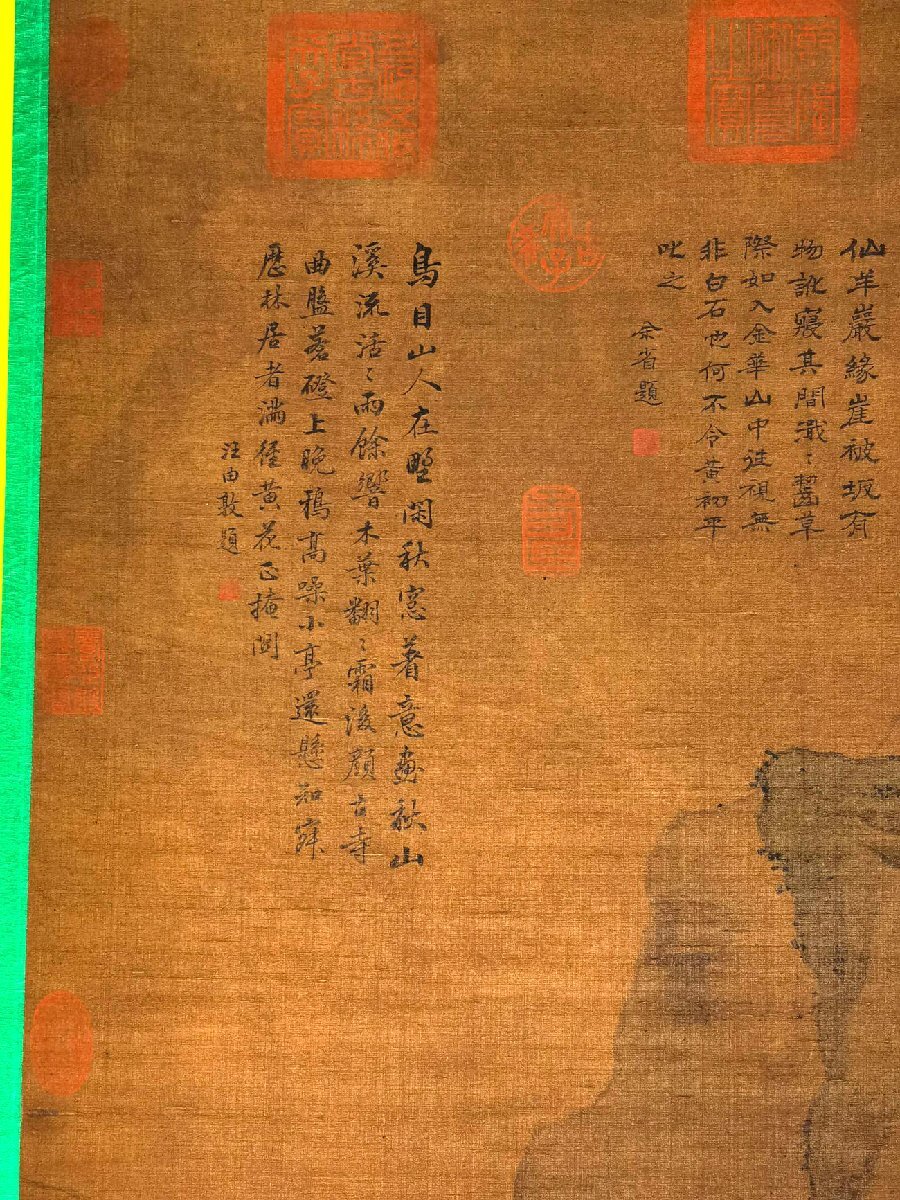 仙羊巖緣崖被坂有
物訛寢其間濈〻齧草
際如入金華山中諦視無
非白石也何不令黃初平
叱之
余省題
烏目山人在野閑秋窓著意畫秋山
溪流活〻雨餘響木葉翻〻霜後顏古寺
曲盤蒼磴上晚鴉高噪小亭還懸知寐
歷林居者滿徑黃花正掩関
汪由敦題